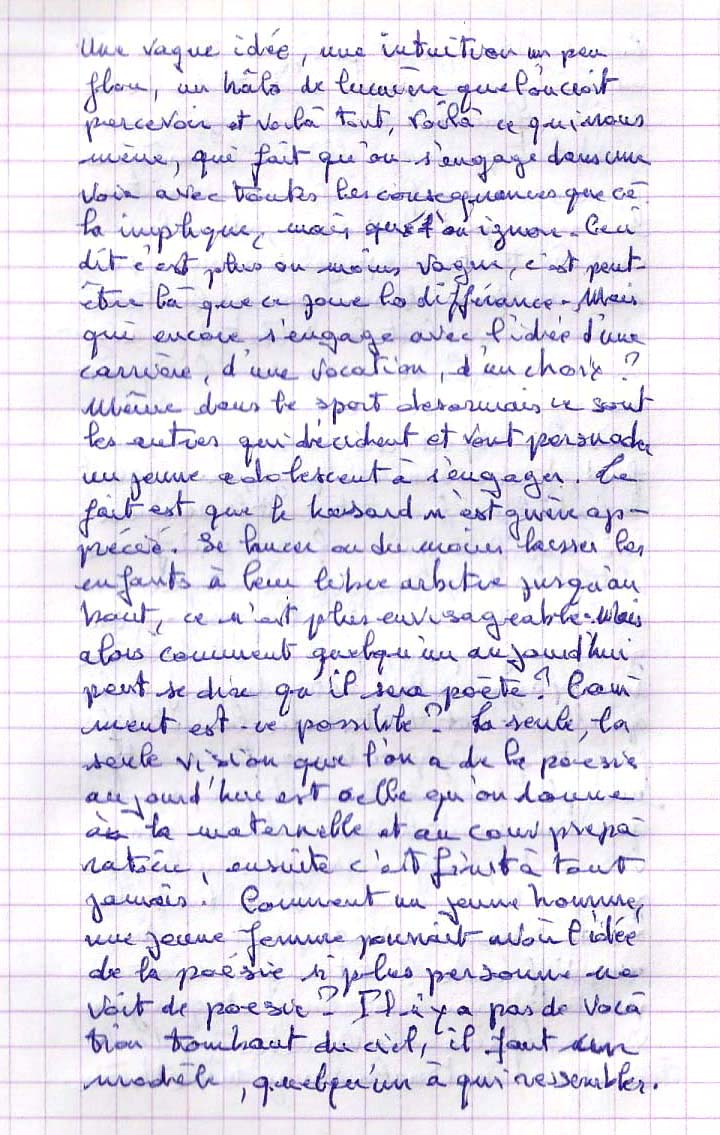 Une vague idée, une intuition un peu
flou, un hâlo de lumière que l'on croit
percevoir et voilà tout, voilà ce qui nous
mène, qui fait qu'on s'engage dans une
voix avec toutes les conséquences que ce
la implique, mais qu'on ignore. Ceci
dit c'est plus ou moins vague, c'est peut-
être là que ce joue la différance. Mais
qui encore s'engage avec l'idée d'une
carrière, d'une vocation, d'un choix ?
Même dans le sport desormais ce sont
les autres qui décident et vont persuader
un jeune adolescent à s'engager. Le
fait est que le hasard n'est guère ap-
précié. Se lancer ou du moins laisser les
enfants à leur libre arbitre jusqu'au
bout, ce n'est plus envisageable. Mais
alors comment quelqu'un aujourd'hui
peut se dire qu'il sera poète ? Com
ment est-ce possible ? La seule, la
seule vision que l'on a de la poésie
aujourd'hui est celle qu'on donne
à la maternelle et au cour prépa
ratoire, ensuite c'est finit à tout
jamais ! Comment un jeune homme,
une jeune femme pourrait avoir l'idée
de la poésie si plus personne ne
voit de poesie ? Il n'y a pas de voca
tion tombant du ciel, il faut un
modèle, quelqu'un à qui ressembler.